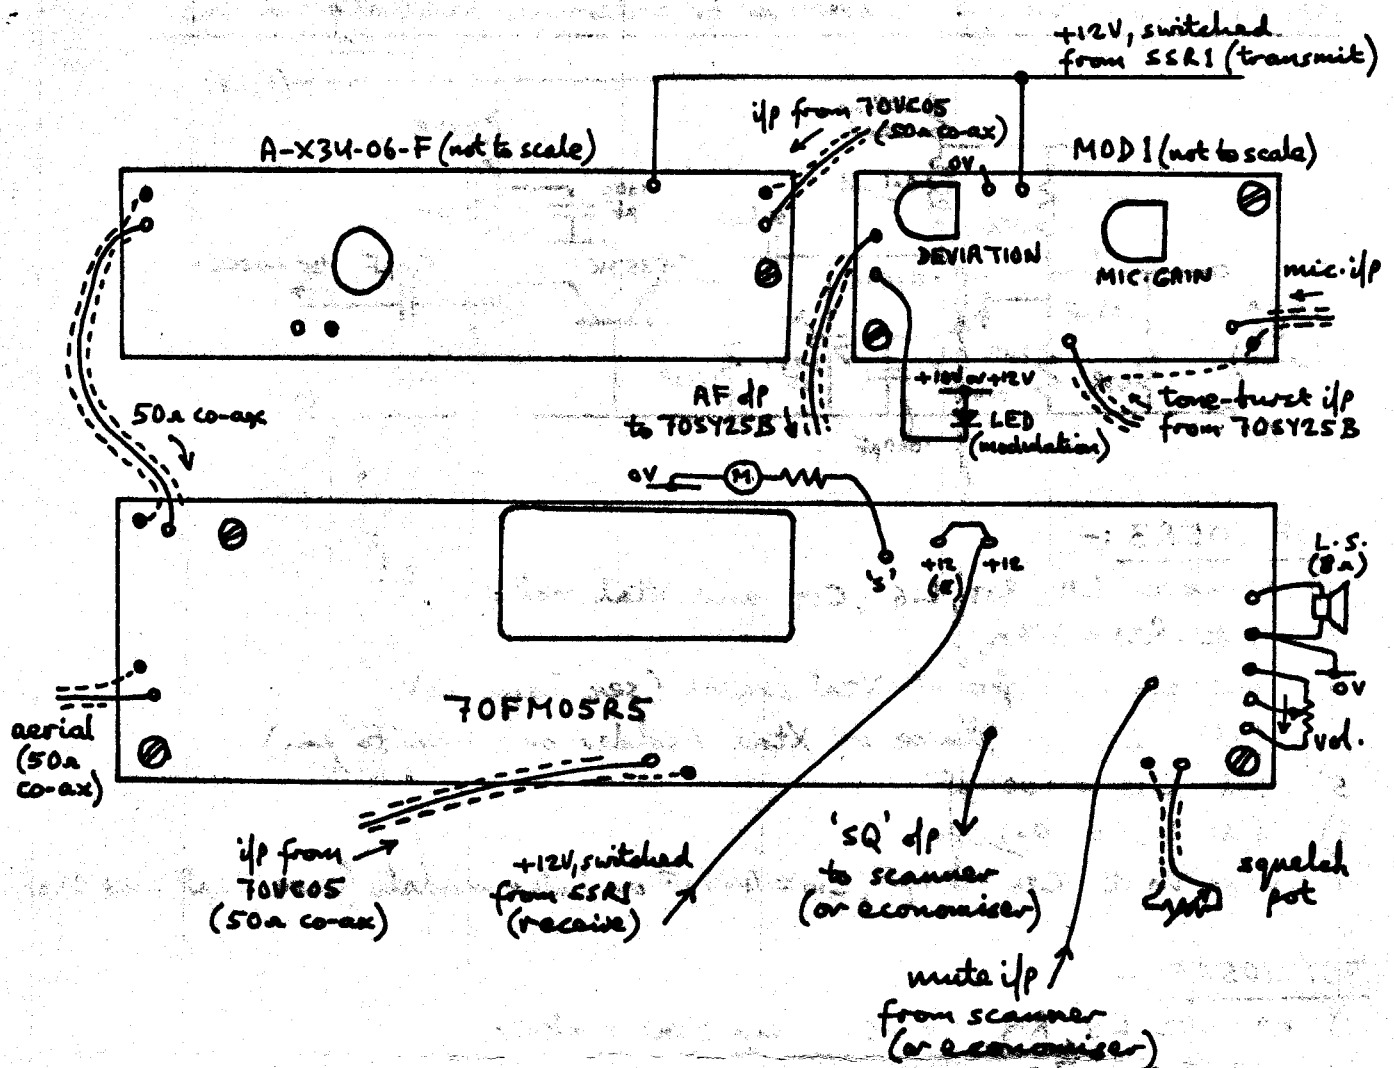 +12V, switched
from SSR1 (transmit)
i/p from 70VC05
(50Ω co-ax)
A-X3U-06-F (not to scale)
MOD 1 (not to scale)
0V
DEVIATION
MIC. GAIN
mic. i/p
+10V or +12V
LED
(modulation)
AF o/p
to 70SY25B
tone-burst i/p
from 70SY25B
50Ω co-ax
0V
M
'S'
+12
(R)
+12
L.S.
(8Ω)
0V
vol.
70FM05R5
aerial
(50Ω
co-ax)
i/p from
70VC05
(50Ω co-ax)
+12V, switched
from SSR1
(receive)
'SQ' o/p
to scanner
(or economiser)
squelch
pot
mute i/p
from scanner
(or economiser)